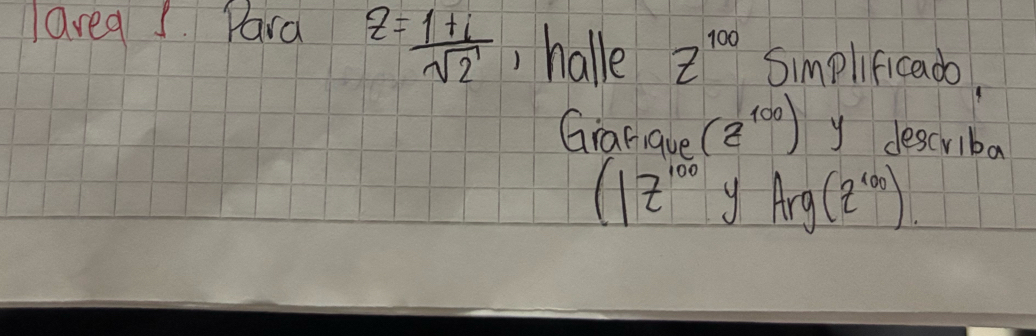 Tarea 1. Para z = \frac{1+i}{\sqrt{2}}, halle z^{100} simplificado.
Grafique (z^{100}) y describa
(|z^{100} y Arg(z^{100}).